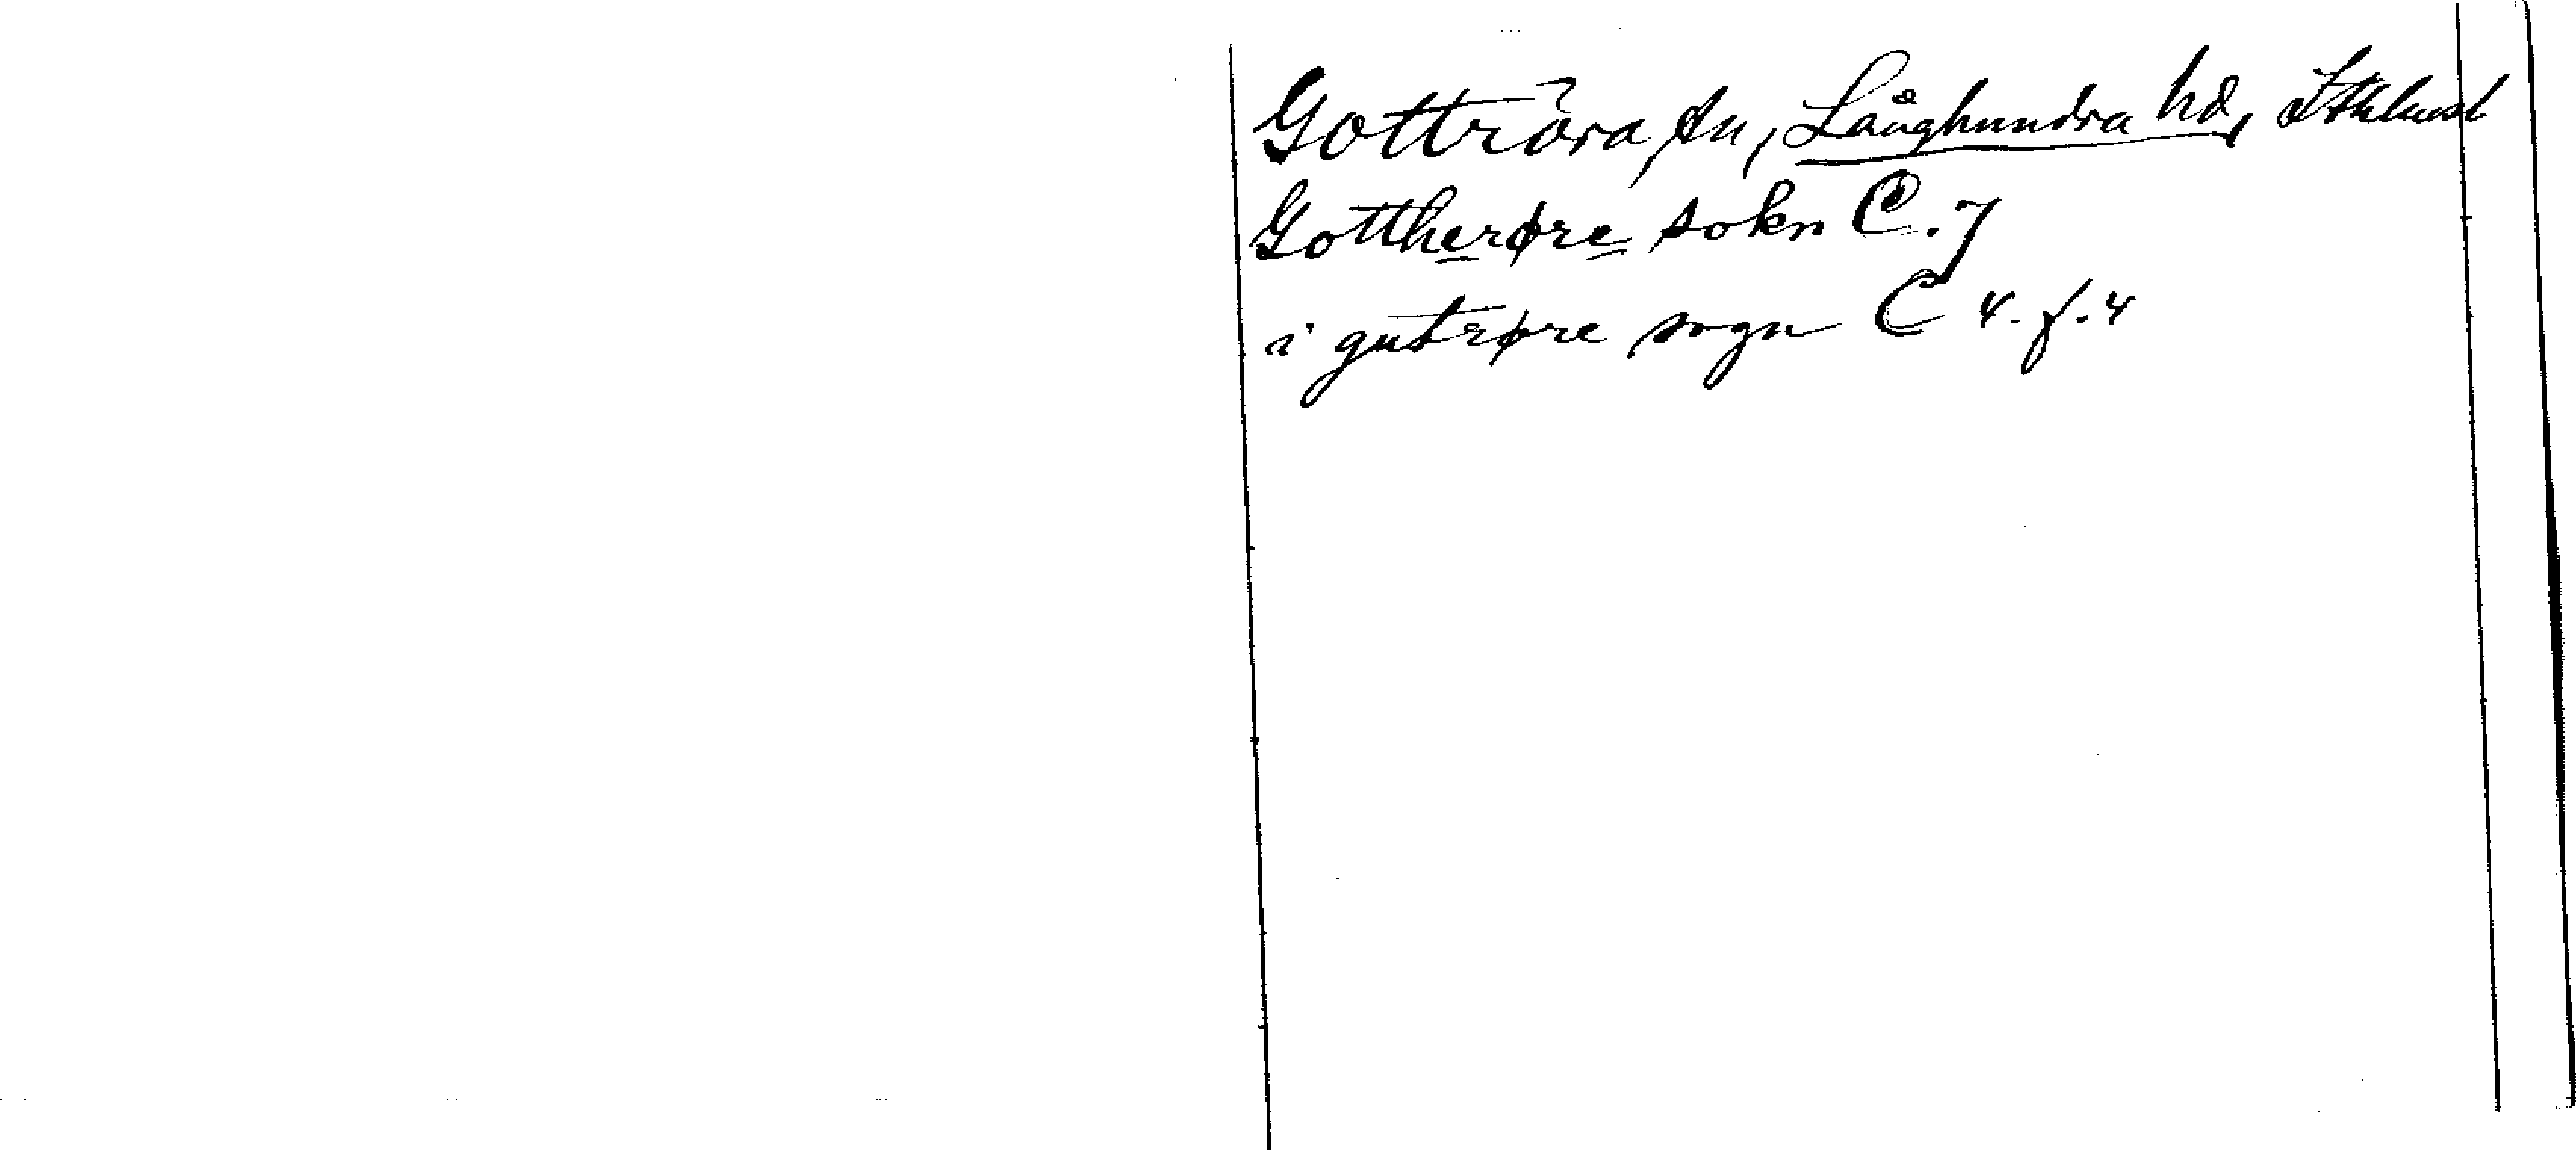 Gottröra sn, Långhundra hd, Sthlmsl
Gottherøre sokn C. 7
i gutrøre sogn C 4. f. 4